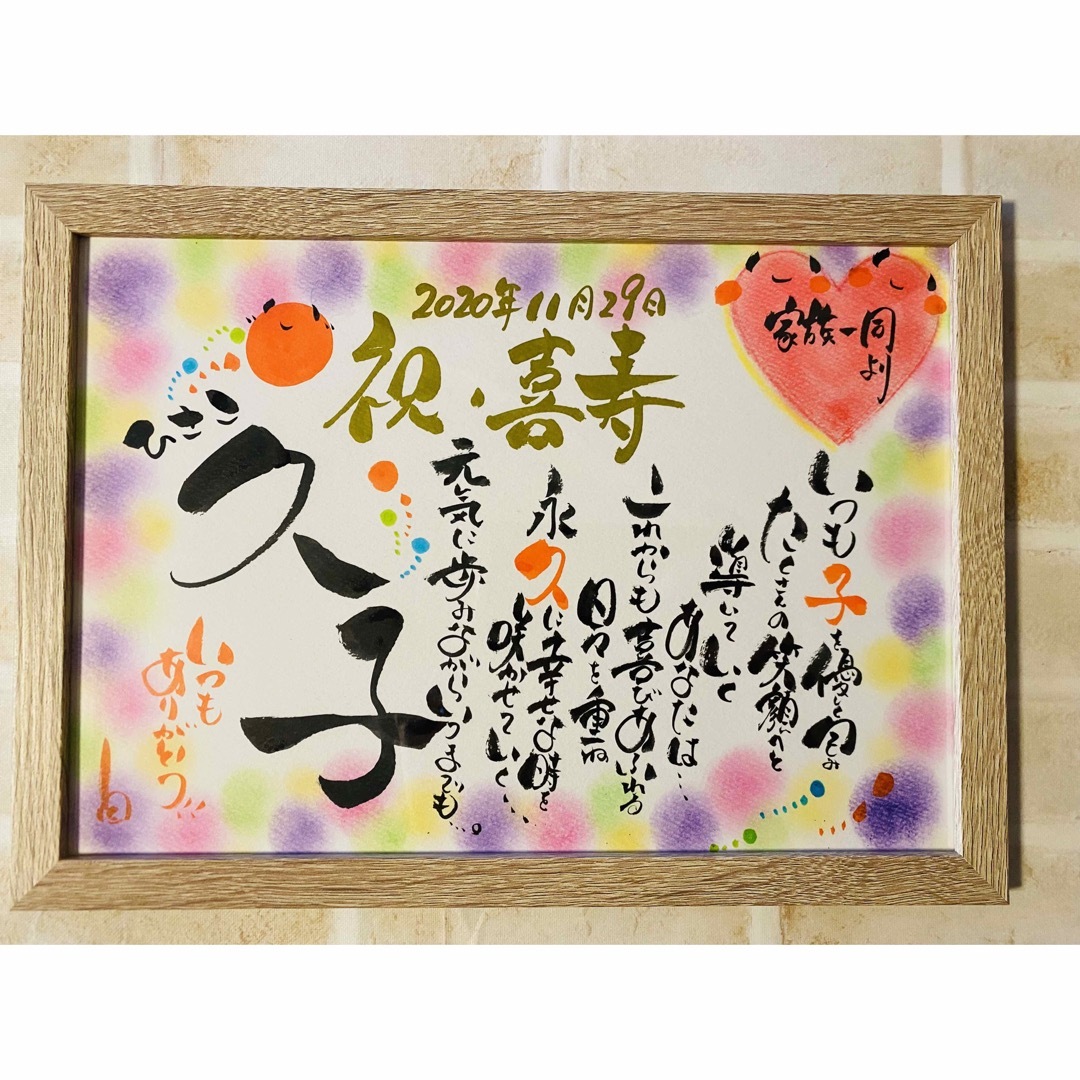 2020年11月29日
祝・喜寿
家族一同
より
いつも子を優しく包み
たくさんの笑顔へと
導いていく
あなたは…
これからも喜びあふれる
日々を重ね
永久に幸せな時を
咲かせていく…
元気に歩みながらいつまでも…。
ひさこ
久子
いつも
ありがとう